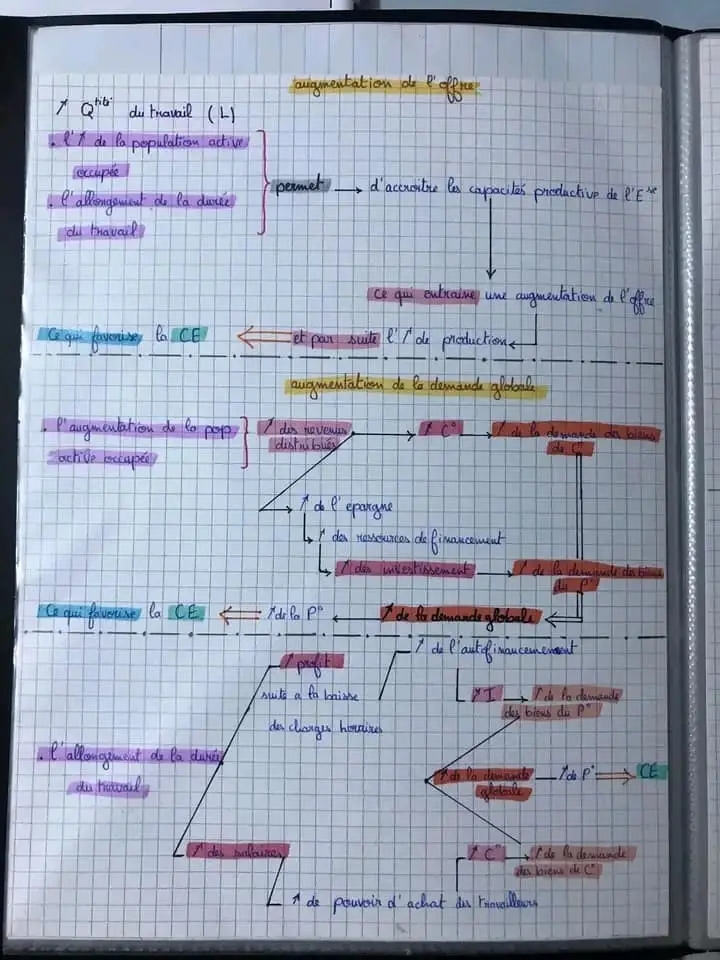 augmentation de l'offre
↗ Q^tité du travail (L)
. l'↗ de la population active
occupée
. l'allongement de la durée
du travail
permet → d'accroitre les capacités productive de l'E^se
Ce qui entraine une augmentation de l'offre
Ce qui favorise la CE ⇐ et par suite l'↗ de production
augmentation de la demande globale
. l'augmentation de la pop
active occupée
↗ des revenus
distribués
↗ C° → ↗ de la demande des biens
de C°
↗ de l'epargne
↗ des ressources de financement
↗ des investissement → ↗ de la demande des biens
du P°
Ce qui favorise la CE ⇐ ↗ de la P° ← ↗ de la demande globale
↗ profit
suite a la baisse
des charges horaires
↗ de l'autofinancement
↗ I → ↗ de la demande
des biens du P°
. l'allongement de la durée
du travail
↗ de la demande
globale
↗ de P° ⇒ CE
↗ des salaires
↗ C° → ↗ de la demande
des biens de C°
↗ de pouvoir d'achat des travailleurs